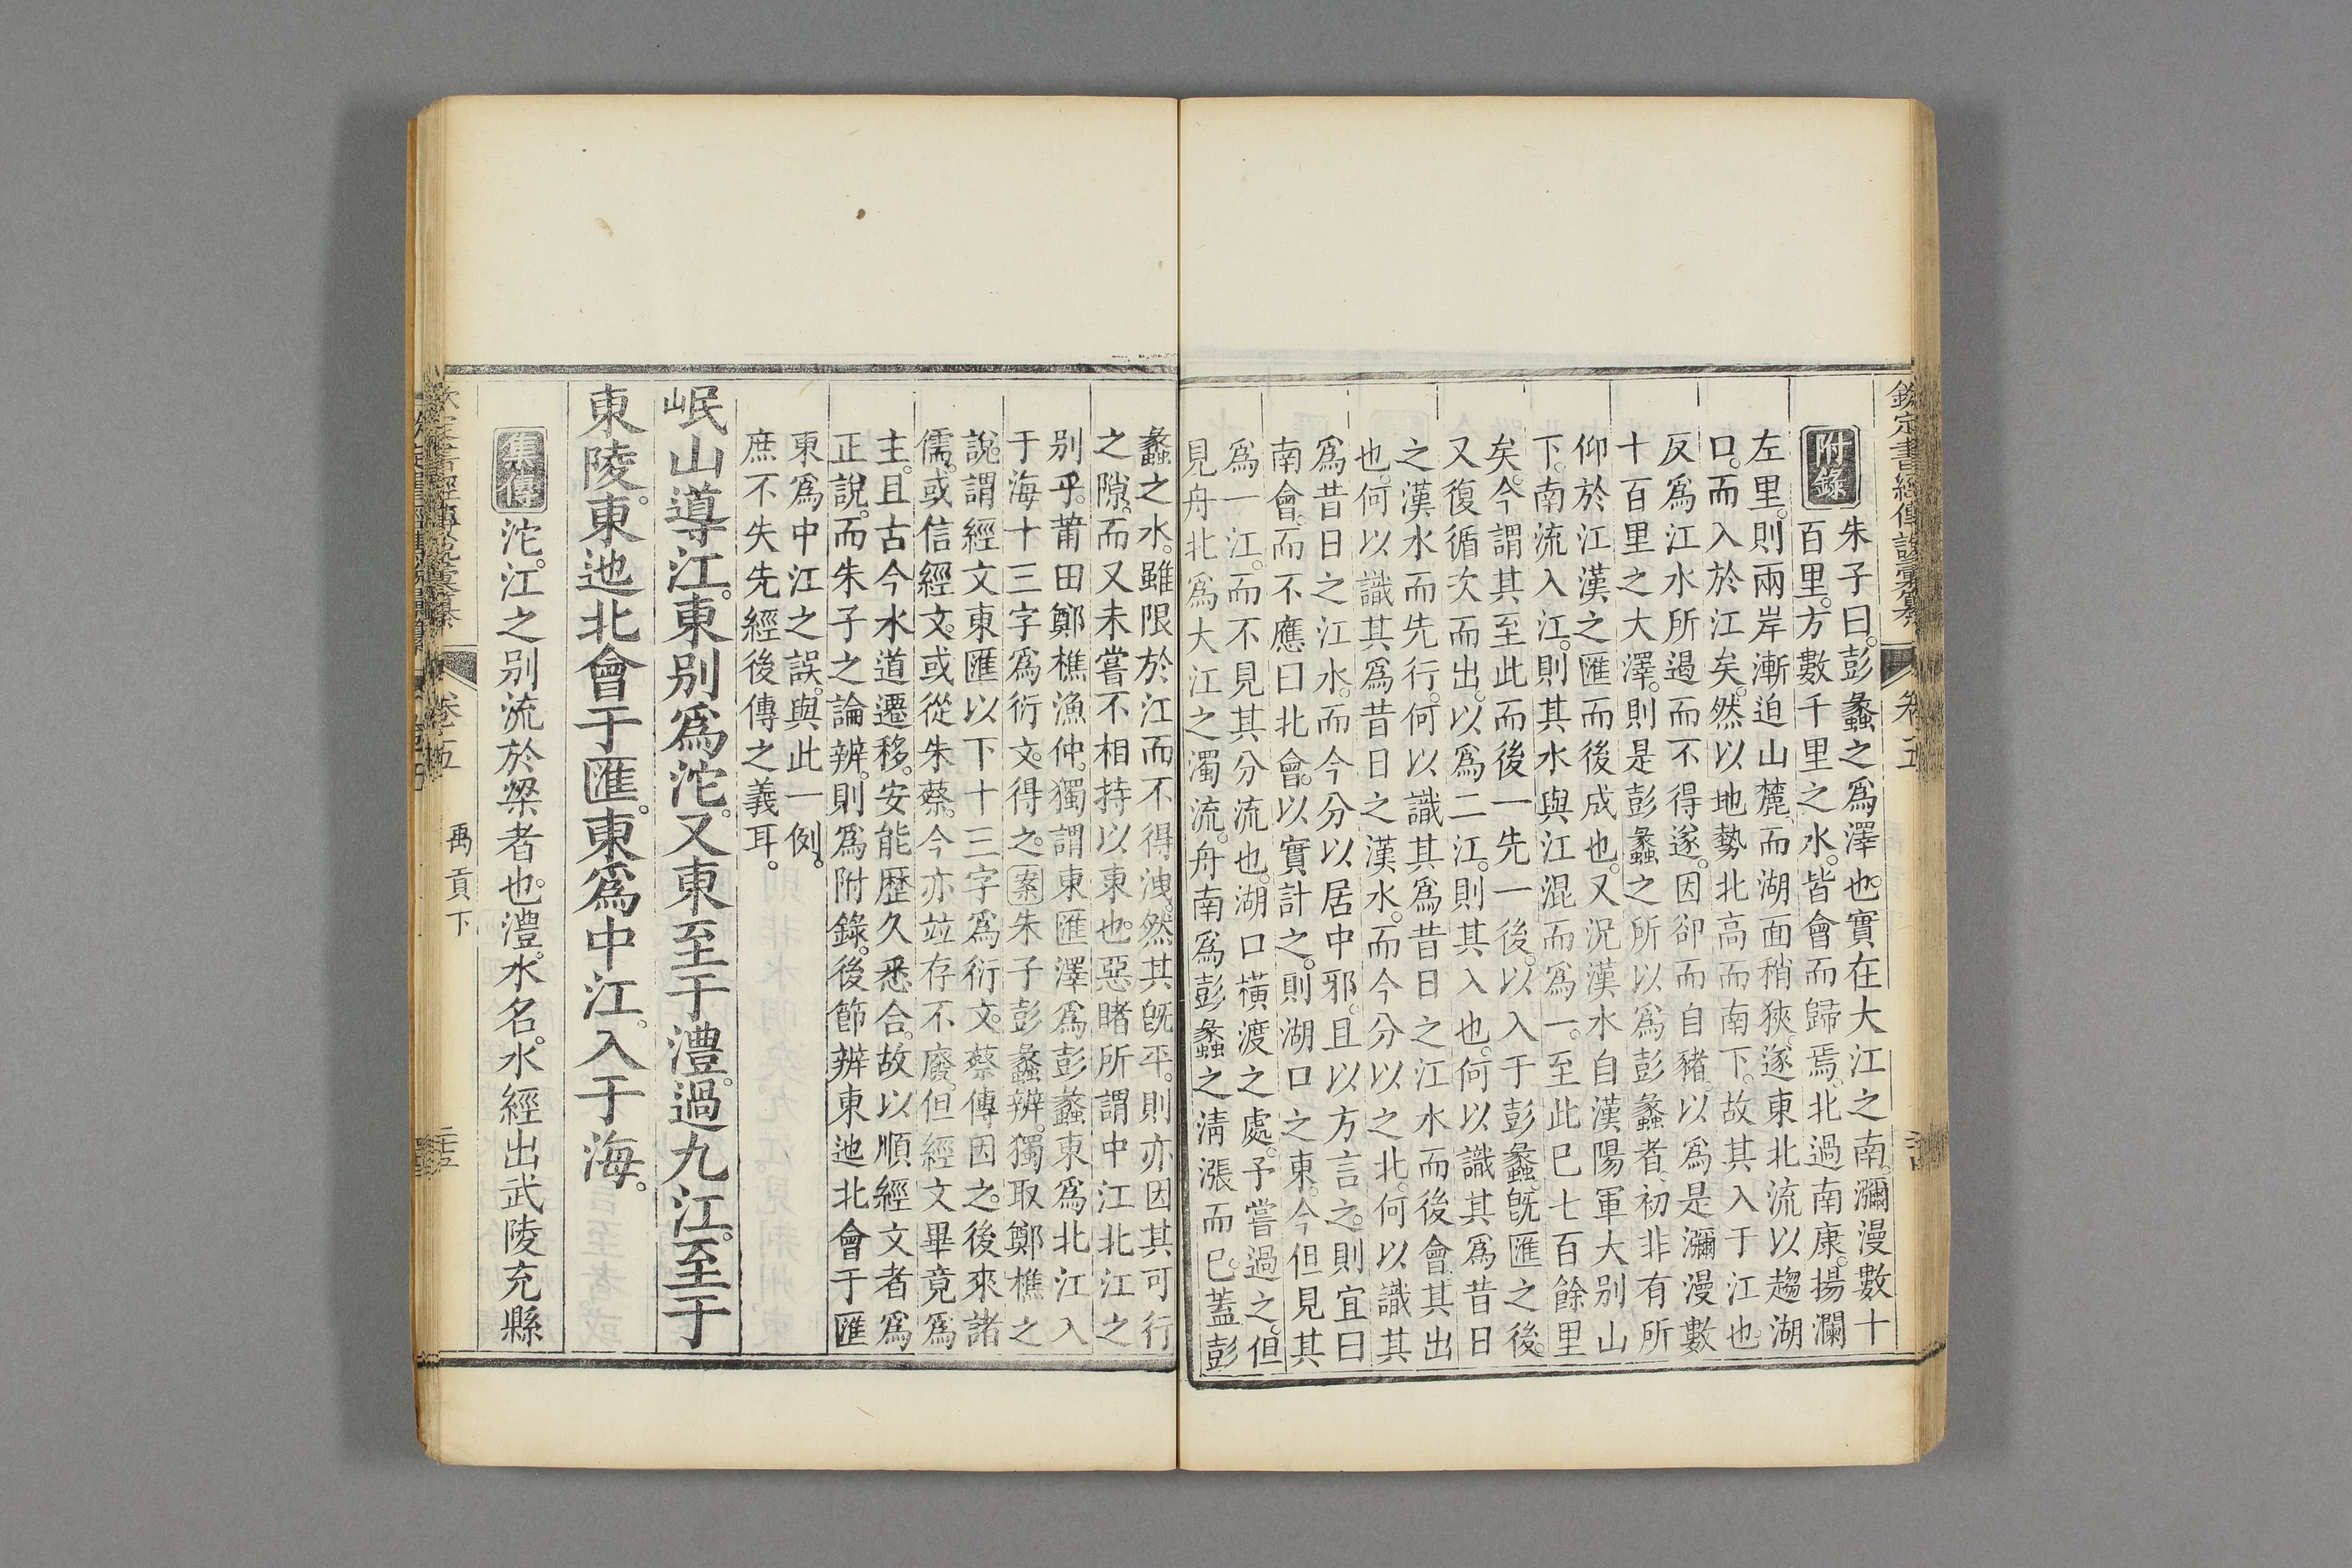 欽定書經傳說彙纂 卷五
附錄
朱子曰。彭蠡之爲澤也。實在大江之南。瀰漫數十
百里。方數千里之水。皆會而歸焉。北過南康。揚瀾
左里。則兩岸漸迫山麓。而湖面稍狹。遂東北流以趨湖
口。而入於江矣。然以地勢北高而南下。故其入于江也。
反爲江水所遏而不得遂。因卻而自豬。以爲是瀰漫數
十百里之大澤。則是彭蠡之所以爲彭蠡者。初非有所
仰於江漢之匯而後成也。又況漢水自漢陽軍大別山
下。南流入江。則其水與江混而爲一。至此已七百餘里
矣。今謂其至此而後一先一後。以入于彭蠡。旣匯之後。
又復循次而出。以爲二江。則其入也。何以識其爲昔日
之漢水而先行。何以識其爲昔日之江水而後會。其出
也。何以識其爲昔日之漢水。而今分以之北。何以識其
爲昔日之江水。而今分以居中邪。且以方言之。則宜曰
南會。而不應曰北會。以實計之。則湖口之東。今但見其
爲一江。而不見其分流也。湖口橫渡之處。予嘗過之。但
見舟北爲大江之濁流。舟南爲彭蠡之清漲而已。蓋彭
蠡之水。雖限於江而不得洩。然其旣平。則亦因其可行
之隙。而又未嘗不相持以東也。惡睹所謂中江北江之
別乎。莆田鄭樵漁仲。獨謂東匯澤爲彭蠡東爲北江入
于海十三字爲衍文。得之。案朱子彭蠡辨。獨取鄭樵之
說。謂經文東匯以下十三字爲衍文。蔡傳因之。後來諸
儒。或信經文。或從朱蔡。今亦竝存不廢。但經文畢竟爲
主。且古今水道遷移。安能歷久悉合。故以順經文者爲
正說。而朱子之論辨。則爲附錄。後節辨東迆北會于匯
東爲中江之誤。與此一例。
庶不失先經後傳之義耳。
岷山導江。東別爲沱。又東至于澧。過九江。至于
東陵。東迆北會于匯。東爲中江。入于海。
集傳
沱。江之別流於梁者也。澧。水名。水經出武陵充縣
卷五 禹貢下